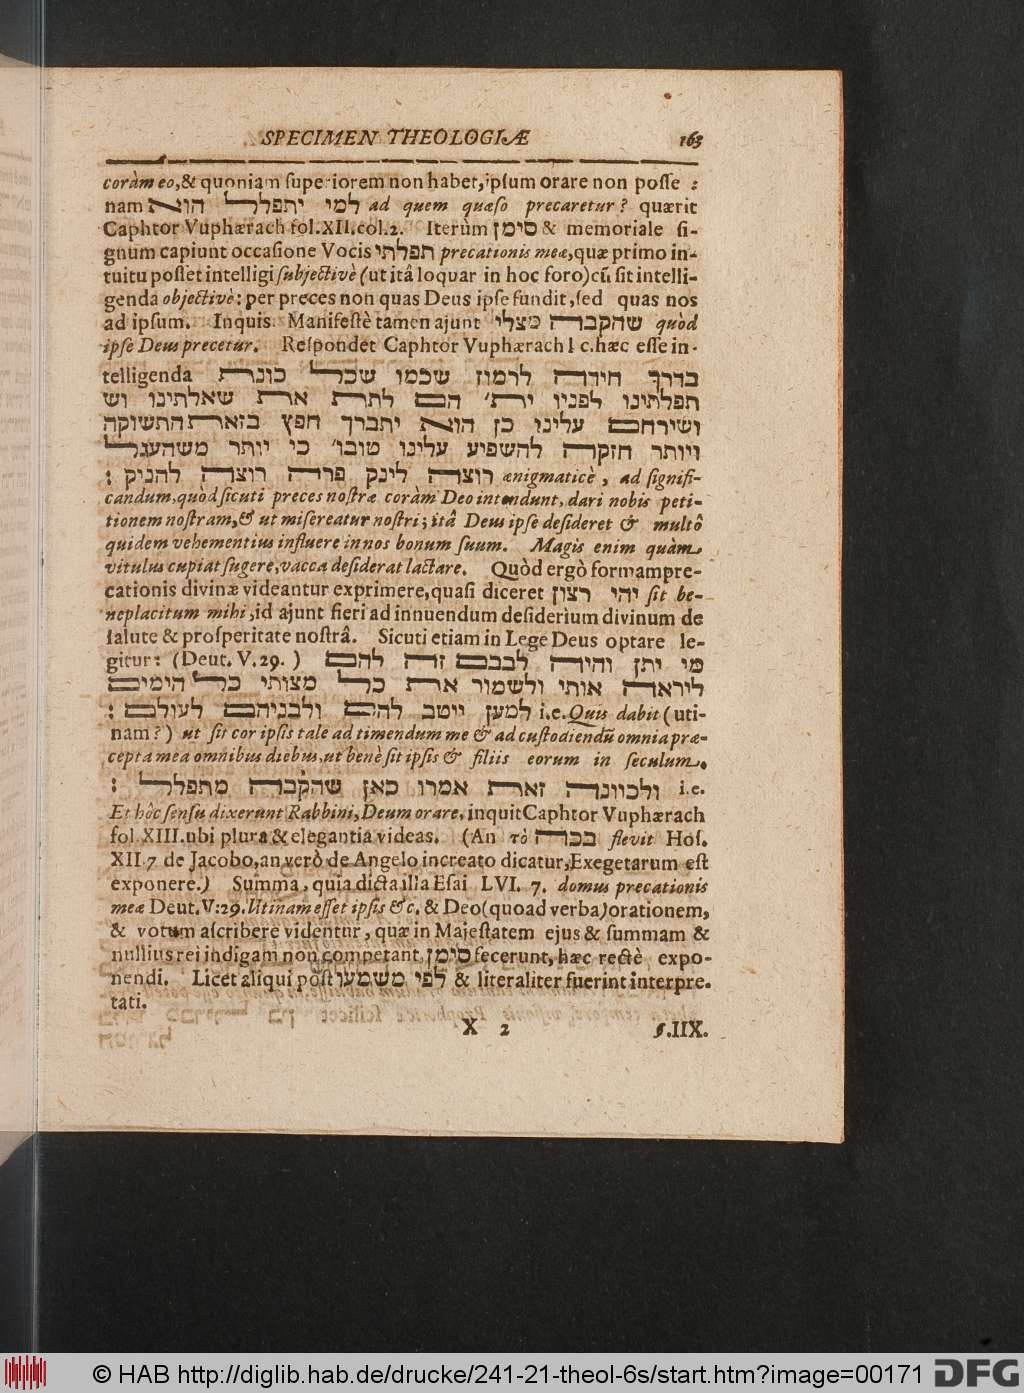 SPECIMEN THEOLOGIÆ 163
coràm eo, & quoniam superiorem non habet, ipsum orare non posse :
nam למי יתפלל הוא ad quem quæso precaretur? quærit
Caphtor Vuphærach fol. XII. col. 2. Iterùm סימן & memoriale si-
gnum capiunt occasione Vocis תפלתי precationis meæ, quæ primo in-
tuitu posset intelligi subjectivè (ut itâ loquar in hoc foro) cũ sit intelli-
genda objectivè: per preces non quas Deus ipse fundit, sed quas nos
ad ipsum. Inquis. Manifestè tamen ajunt שהקבה מצלי quòd
ipse Deus precetur. Respondet Caphtor Vuphærach l c. hæc esse in-
telligenda בדרך חידה לרמוז שכמו שכל כונת
תפלתינו לפניו ית׳ הם לתת את שאלתינו וש
ושירחם עלינו כן הוא יתברך חפץ בזאת התשוקה
ויותר חזקה להשפיע עלינו טובו׳ כי יותר משהעגל
רוצה לינק פרה רוצה להניק : ænigmaticè, ad signifi-
candum, quòd sicuti preces nostræ coràm Deo intendunt, dari nobis peti-
tionem nostram, & ut misereatur nostri; itâ Deus ipse desideret & multô
quidem vehementius influere in nos bonum suum. Magis enim quàm
vitulus cupiat sugere, vacca desiderat lactare. Quòd ergò formam pre-
cationis divinæ videantur exprimere, quasi diceret יהי רצון sit be-
neplacitum mihi, id ajunt fieri ad innuendum desiderìum divinum de
salute & prosperitate nostrâ. Sicuti etiam in Lege Deus optare le-
gitur: (Deut. V. 29. ) מי יתן והיה לבבם זה להם
ליראה אותי ולשמור את כל מצותי כל הימים
למען ייטב להם ולבניהם לעולם : i.e. Quis dabit (uti-
nam?) ut sit cor ipsis tale ad timendum me & ad custodiendũ omnia præ-
cepta mea omnibus diebus, ut benè sit ipsis & filiis eorum in seculum.
ולכוונה זאת אמרו כאן שהקבה מתפלל : i.e.
Et hôc sensu dixerunt Rabbini, Deum orare, inquit Caphtor Vuphærach
fol. XIII. ubi plura & elegantia videas. (An τὸ בכה flevit Hos.
XII. 7 de Jacobo, an verò de Angelo increato dicatur, Exegetarum est
exponere.) Summa, quia dicta illa Esai LVI. 7. domus precationis
meæ Deut. V: 29. Utinam esset ipsis &c. & Deo (quoad verba) orationem,
& votum ascribere videntur, quæ in Majestatem ejus & summam &
nullius rei indigam non competant, סימן fecerunt, hæc rectè expo-
nendi. Licet aliqui pòst לפי משמעו & literaliter fuerint interpre-
tati.
X 2 §. IIX.
© HAB http://diglib.hab.de/drucke/241-21-theol-6s/start.htm?image=00171 DFG